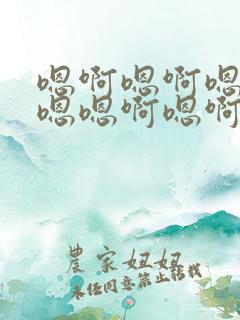 嗯啊嗯啊嗯
嗯嗯啊嗯啊
農家妞妞
未经同意禁止转载